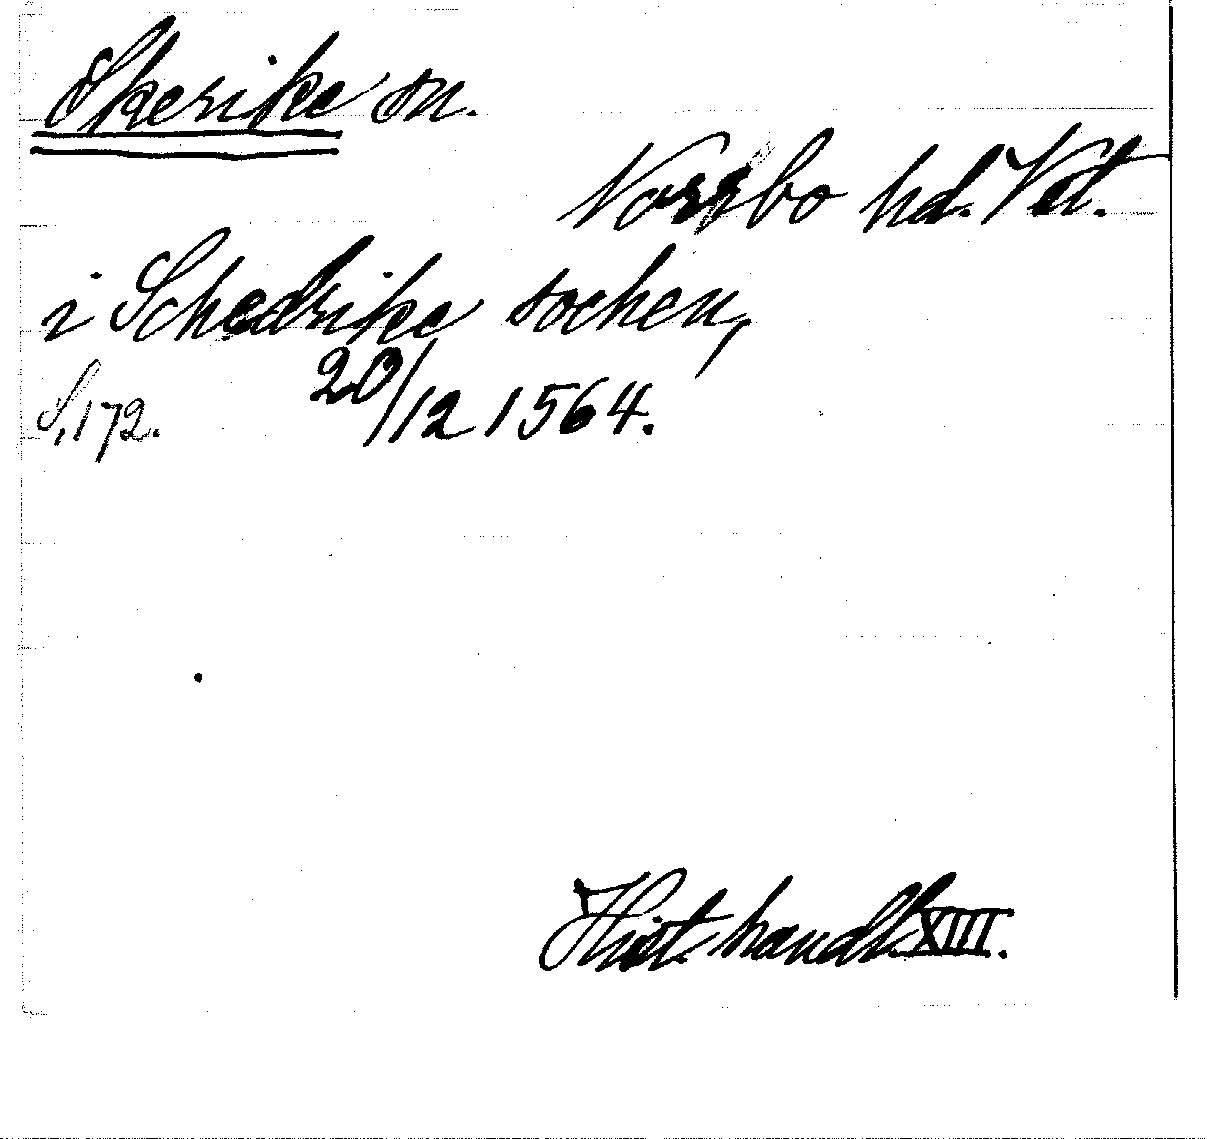 Skerike sn.
Norrbo hd. Vstl.
i Schedrike sochen,
S. 172. 20/12 1564.
Hist. handl. XIII.